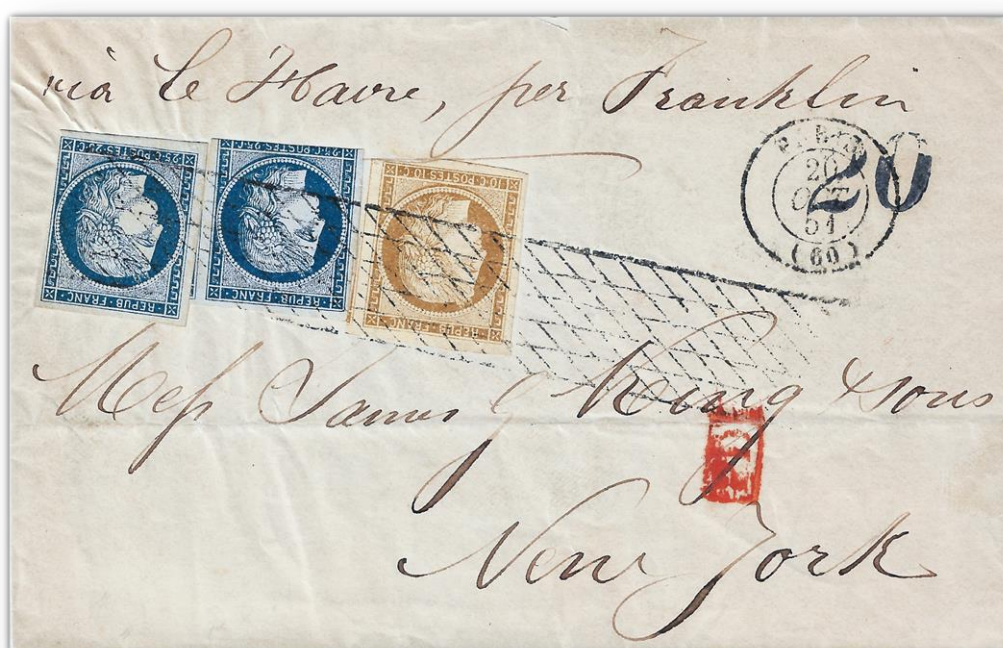 via le Havre, per Franklin
25 C. POSTES 25 C.
REPUB. FRANC.
25 C. POSTES 25 C.
REPUB. FRANC.
10 C. POSTES 10 C.
REPUB. FRANC.
20
PARIS
20
OCT
51
(60)
Mess James G King & Sons
PD
New York